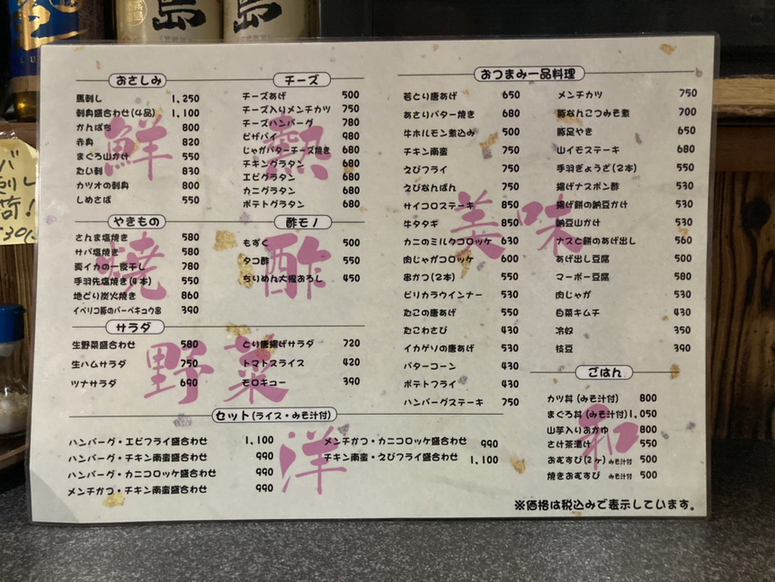 島
島
おさしみ
馬刺し 1,250
刺身盛合わせ(4品) 1,100
かんぱち 800
赤身 820
まぐろ山かけ 550
たい刺 830
カツオの刺身 800
しめさば 550
鮮
チーズ
チーズあげ 500
チーズ入りメンチカツ 750
チーズハンバーグ 780
ピザパイ 980
じゃがバターチーズ焼き 680
チキングラタン 680
エビグラタン 680
カニグラタン 680
ポテトグラタン 680
熱
やきもの
さんま塩焼き 580
サバ塩焼き 580
真イカの一夜干し 780
手羽先塩焼き(4本) 550
地どり炭火焼き 860
イベリコ豚のバーベキュウ串 390
焼
酢モノ
もずく 500
タコ酢 550
ちりめん大根おろし 450
酢
サラダ
生野菜盛合わせ 580
生ハムサラダ 750
ツナサラダ 690
とり唐揚げサラダ 720
トマトスライス 420
モロキュー 390
野菜
セット(ライス・みそ汁付)
ハンバーグ・エビフライ盛合わせ 1,100
ハンバーグ・チキン南蛮盛合わせ 990
ハンバーグ・カニコロッケ盛合わせ 990
メンチかつ・チキン南蛮盛合わせ 990
メンチかつ・カニコロッケ盛合わせ 990
チキン南蛮・えびフライ盛合わせ 1,100
洋
おつまみ一品料理
若とり唐あげ 650
あさりバター焼き 680
牛ホルモン煮込み 500
チキン南蛮 750
えびフライ 750
えびなんばん 750
サイコロステーキ 850
牛タタギ 850
カニのミルクコロッケ 630
肉じゃがコロッケ 600
串かつ(2本) 550
ピリカラウインナー 530
たこの唐あげ 550
たこわさび 430
イカゲソの唐あげ 530
バターコーン 430
ポテトフライ 430
ハンバーグステーキ 750
メンチカツ 750
豚なんこつみそ煮 700
豚足やき 650
山イモステーキ 680
手羽ぎょうざ(2本) 550
揚げナスポン酢 530
揚げ餅の納豆かけ 530
納豆山かけ 530
ナスと餅のあげ出し 560
あげ出し豆腐 500
マーボー豆腐 580
肉じゃが 530
白菜キムチ 430
冷奴 350
枝豆 390
美味
ごはん
カツ丼(みそ汁付) 800
まぐろ丼(みそ汁付) 1,050
山芋入りおかゆ 800
さけ茶漬け 550
おむすび(2ヶ)みそ汁付 500
焼きおむすび みそ汁付 500
和
※価格は税込みで表示しています。